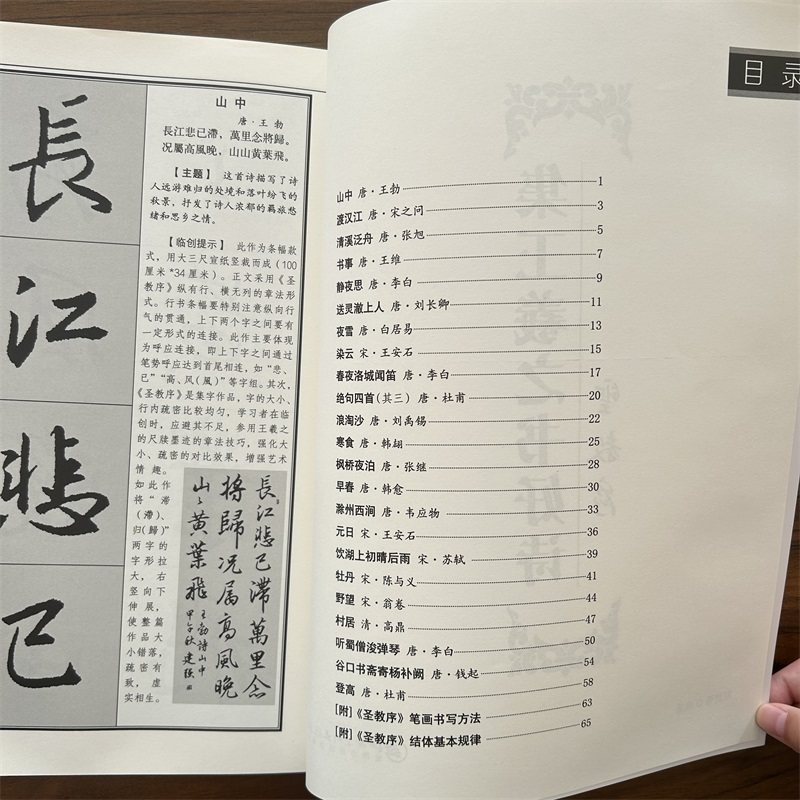 長
江
悲
已
山中
唐·王勃
長江悲已滯，萬里念將歸。
况屬高風晚，山山黃葉飛。
【主题】 这首诗描写了诗
人远游难归的处境和落叶纷飞的
秋景，抒发了诗人浓郁的羁旅愁
绪和思乡之情。
【临创提示】 此作为条幅款
式，用大三尺宣纸竖裁而成（100
厘米*34厘米）。正文采用《圣
教序》纵有行、横无列的章法形
式。行书条幅要特别注意纵向行
气的贯通，上下两个字之间要有
一定形式的连接。此作主要体现
为呼应连接，即上下字之间通过
笔势呼应达到首尾相连，如“悲、
已”“高、风(風)”等字组。其次，
《圣教序》是集字作品，字的大小、
行内疏密比较均匀，学习者在临
创时，应避其不足，参用王羲之
的尺牍墨迹的章法技巧，强化大
小、疏密的对比效果，增强艺术
情趣。
如此作
将“滞
(滯)、
归(歸)”
两字的
字形拉
大，右
竖向下
伸展，
使整篇
作品大
小错落，
疏密有
致，虚
实相生。
長江悲已滯萬里念
將歸况屬高風晚
山山黃葉飛
王勃詩山中
甲午秋建強
目录
山中 唐·王勃 1
渡汉江 唐·宋之问 3
清溪泛舟 唐·张旭 5
书事 唐·王维 7
静夜思 唐·李白 9
送灵澈上人 唐·刘长卿 11
夜雪 唐·白居易 13
染云 宋·王安石 15
春夜洛城闻笛 唐·李白 17
绝句四首(其三) 唐·杜甫 20
浪淘沙 唐·刘禹锡 22
寒食 唐·韩翃 25
枫桥夜泊 唐·张继 28
早春 唐·韩愈 30
滁州西涧 唐·韦应物 33
元日 宋·王安石 36
饮湖上初晴后雨 宋·苏轼 39
牡丹 宋·陈与义 41
野望 宋·翁卷 44
村居 清·高鼎 47
听蜀僧浚弹琴 唐·李白 50
谷口书斋寄杨补阙 唐·钱起 54
登高 唐·杜甫 58
[附]《圣教序》笔画书写方法 63
[附]《圣教序》结体基本规律 65